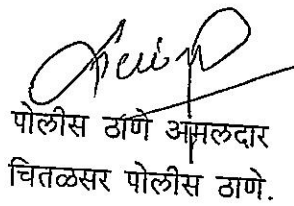 पोलीस ठाणे अमलदार
चितळसर पोलीस ठाणे.